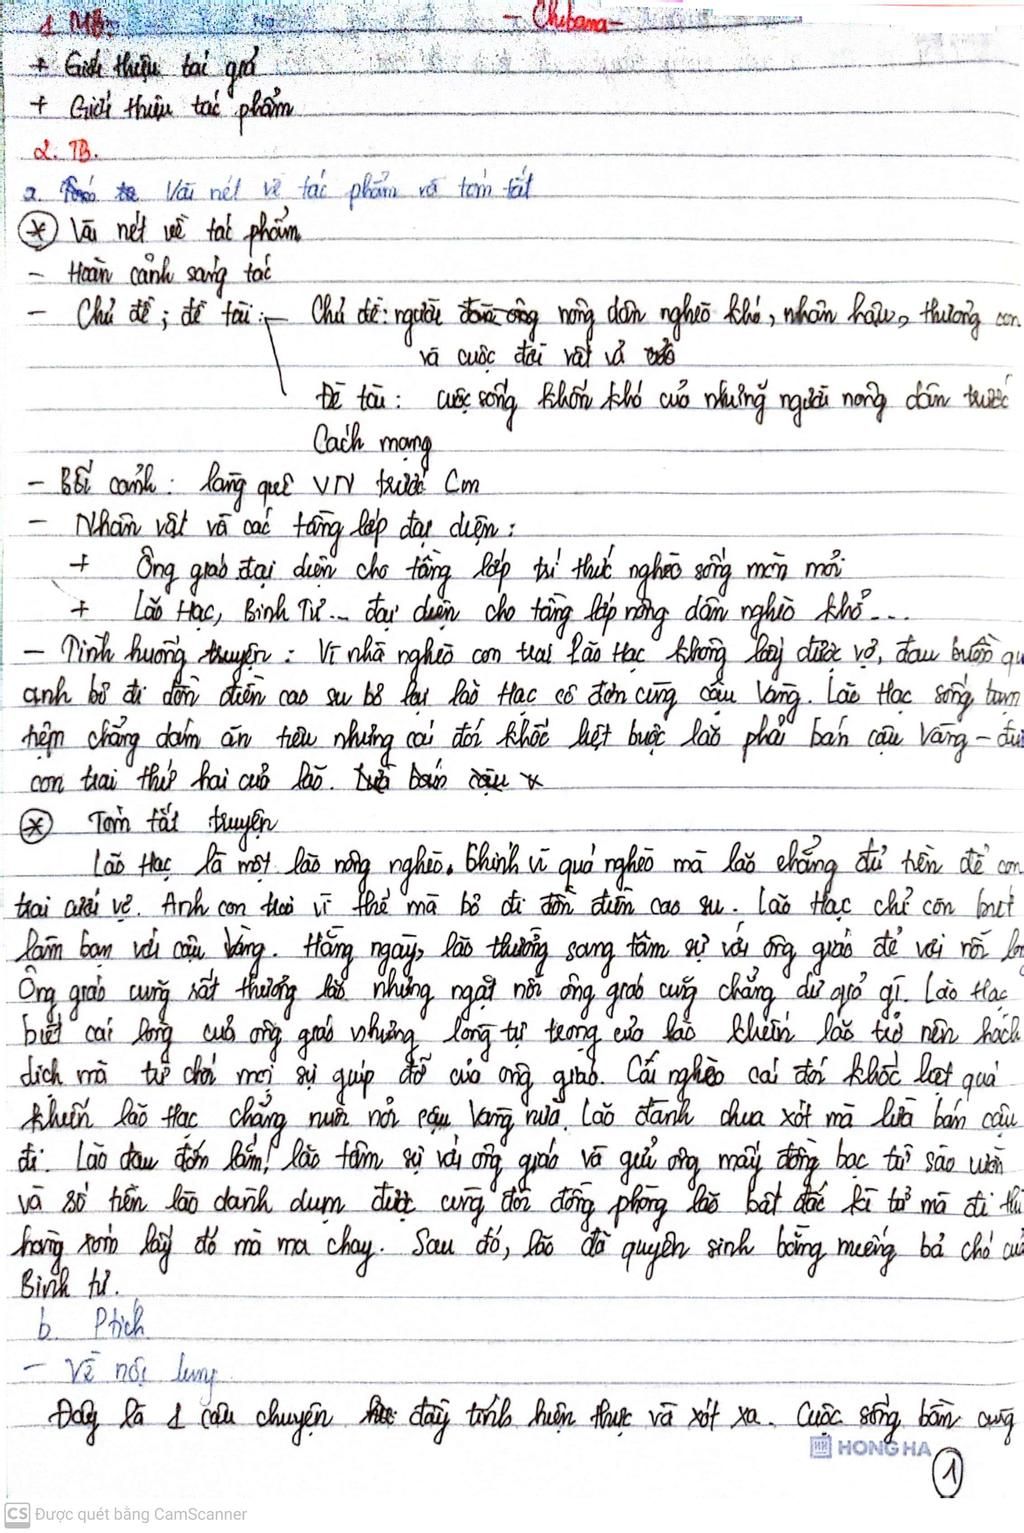 - Chibana -
1. MB:
+ Giới thiệu tác giả
+ Giới thiệu tác phẩm
2. TB.
a. Vài nét về tác phẩm và tóm tắt
* Vài nét về tác phẩm
- Hoàn cảnh sáng tác
- Chủ đề; đề tài: Chủ đề: người nông dân nghèo khó, nhân hậu, thương con
và cuộc đời vất vả
Đề tài: cuộc sống khốn khó của những người nông dân trước
Cách mạng
- Bối cảnh: làng quê VN trước Cm
- Nhân vật và các tầng lớp đại diện:
+ Ông giáo đại diện cho tầng lớp trí thức nghèo sống mòn mỏi
+ Lão Hạc, Binh Tư... đại diện cho tầng lớp nông dân nghèo khổ...
- Tình huống truyện: Vì nhà nghèo con trai Lão Hạc không lấy được vợ, đau buồn qu
anh bỏ đi đồn điền cao su bỏ lại lão Hạc cô đơn cùng cậu Vàng. Lão Hạc sống tằn
tiệm chẳng dám ăn tiêu nhưng cái đói khốc liệt buộc lão phải bán cậu Vàng - đứa
con trai thứ hai của lão.
* Tóm tắt truyện
Lão Hạc là một lão nông nghèo. Chính vì quá nghèo mà lão chẳng đủ tiền để con
trai cưới vợ. Anh con trai vì thế mà bỏ đi đồn điền cao su. Lão Hạc chỉ còn biết
làm bạn với cậu Vàng. Hằng ngày, lão thường sang tâm sự với ông giáo để vơi nỗi lòn
Ông giáo cũng rất thương lão nhưng ngặt nỗi ông giáo cũng chẳng dư giả gì. Lão Hạc
biết cái lòng của ông giáo nhưng lòng tự trọng của lão khiến lão trở nên hách
dịch mà từ chối mọi sự giúp đỡ của ông giáo. Cái nghèo cái đói khốc liệt quá
khiến lão Hạc chẳng nuôi nổi cậu Vàng nữa. Lão đành chua xót mà lừa bán cậu
đi. Lão đau đớn lắm! lão tâm sự với ông giáo và gửi ông mấy đồng bạc từ sào vườn
và số tiền lão dành dụm được cũng đôi đồng phòng lão bất đắc kì tử mà đi thì
hàng xóm lấy đó mà ma chay. Sau đó, lão đã quyên sinh bằng miếng bả chó của
Binh tư.
b. Ptích
- Về nội dung
Đây là 1 câu chuyện đầy tính hiện thực và xót xa. Cuộc sống bần cùng
HONG HA
1
CS Được quét bằng CamScanner